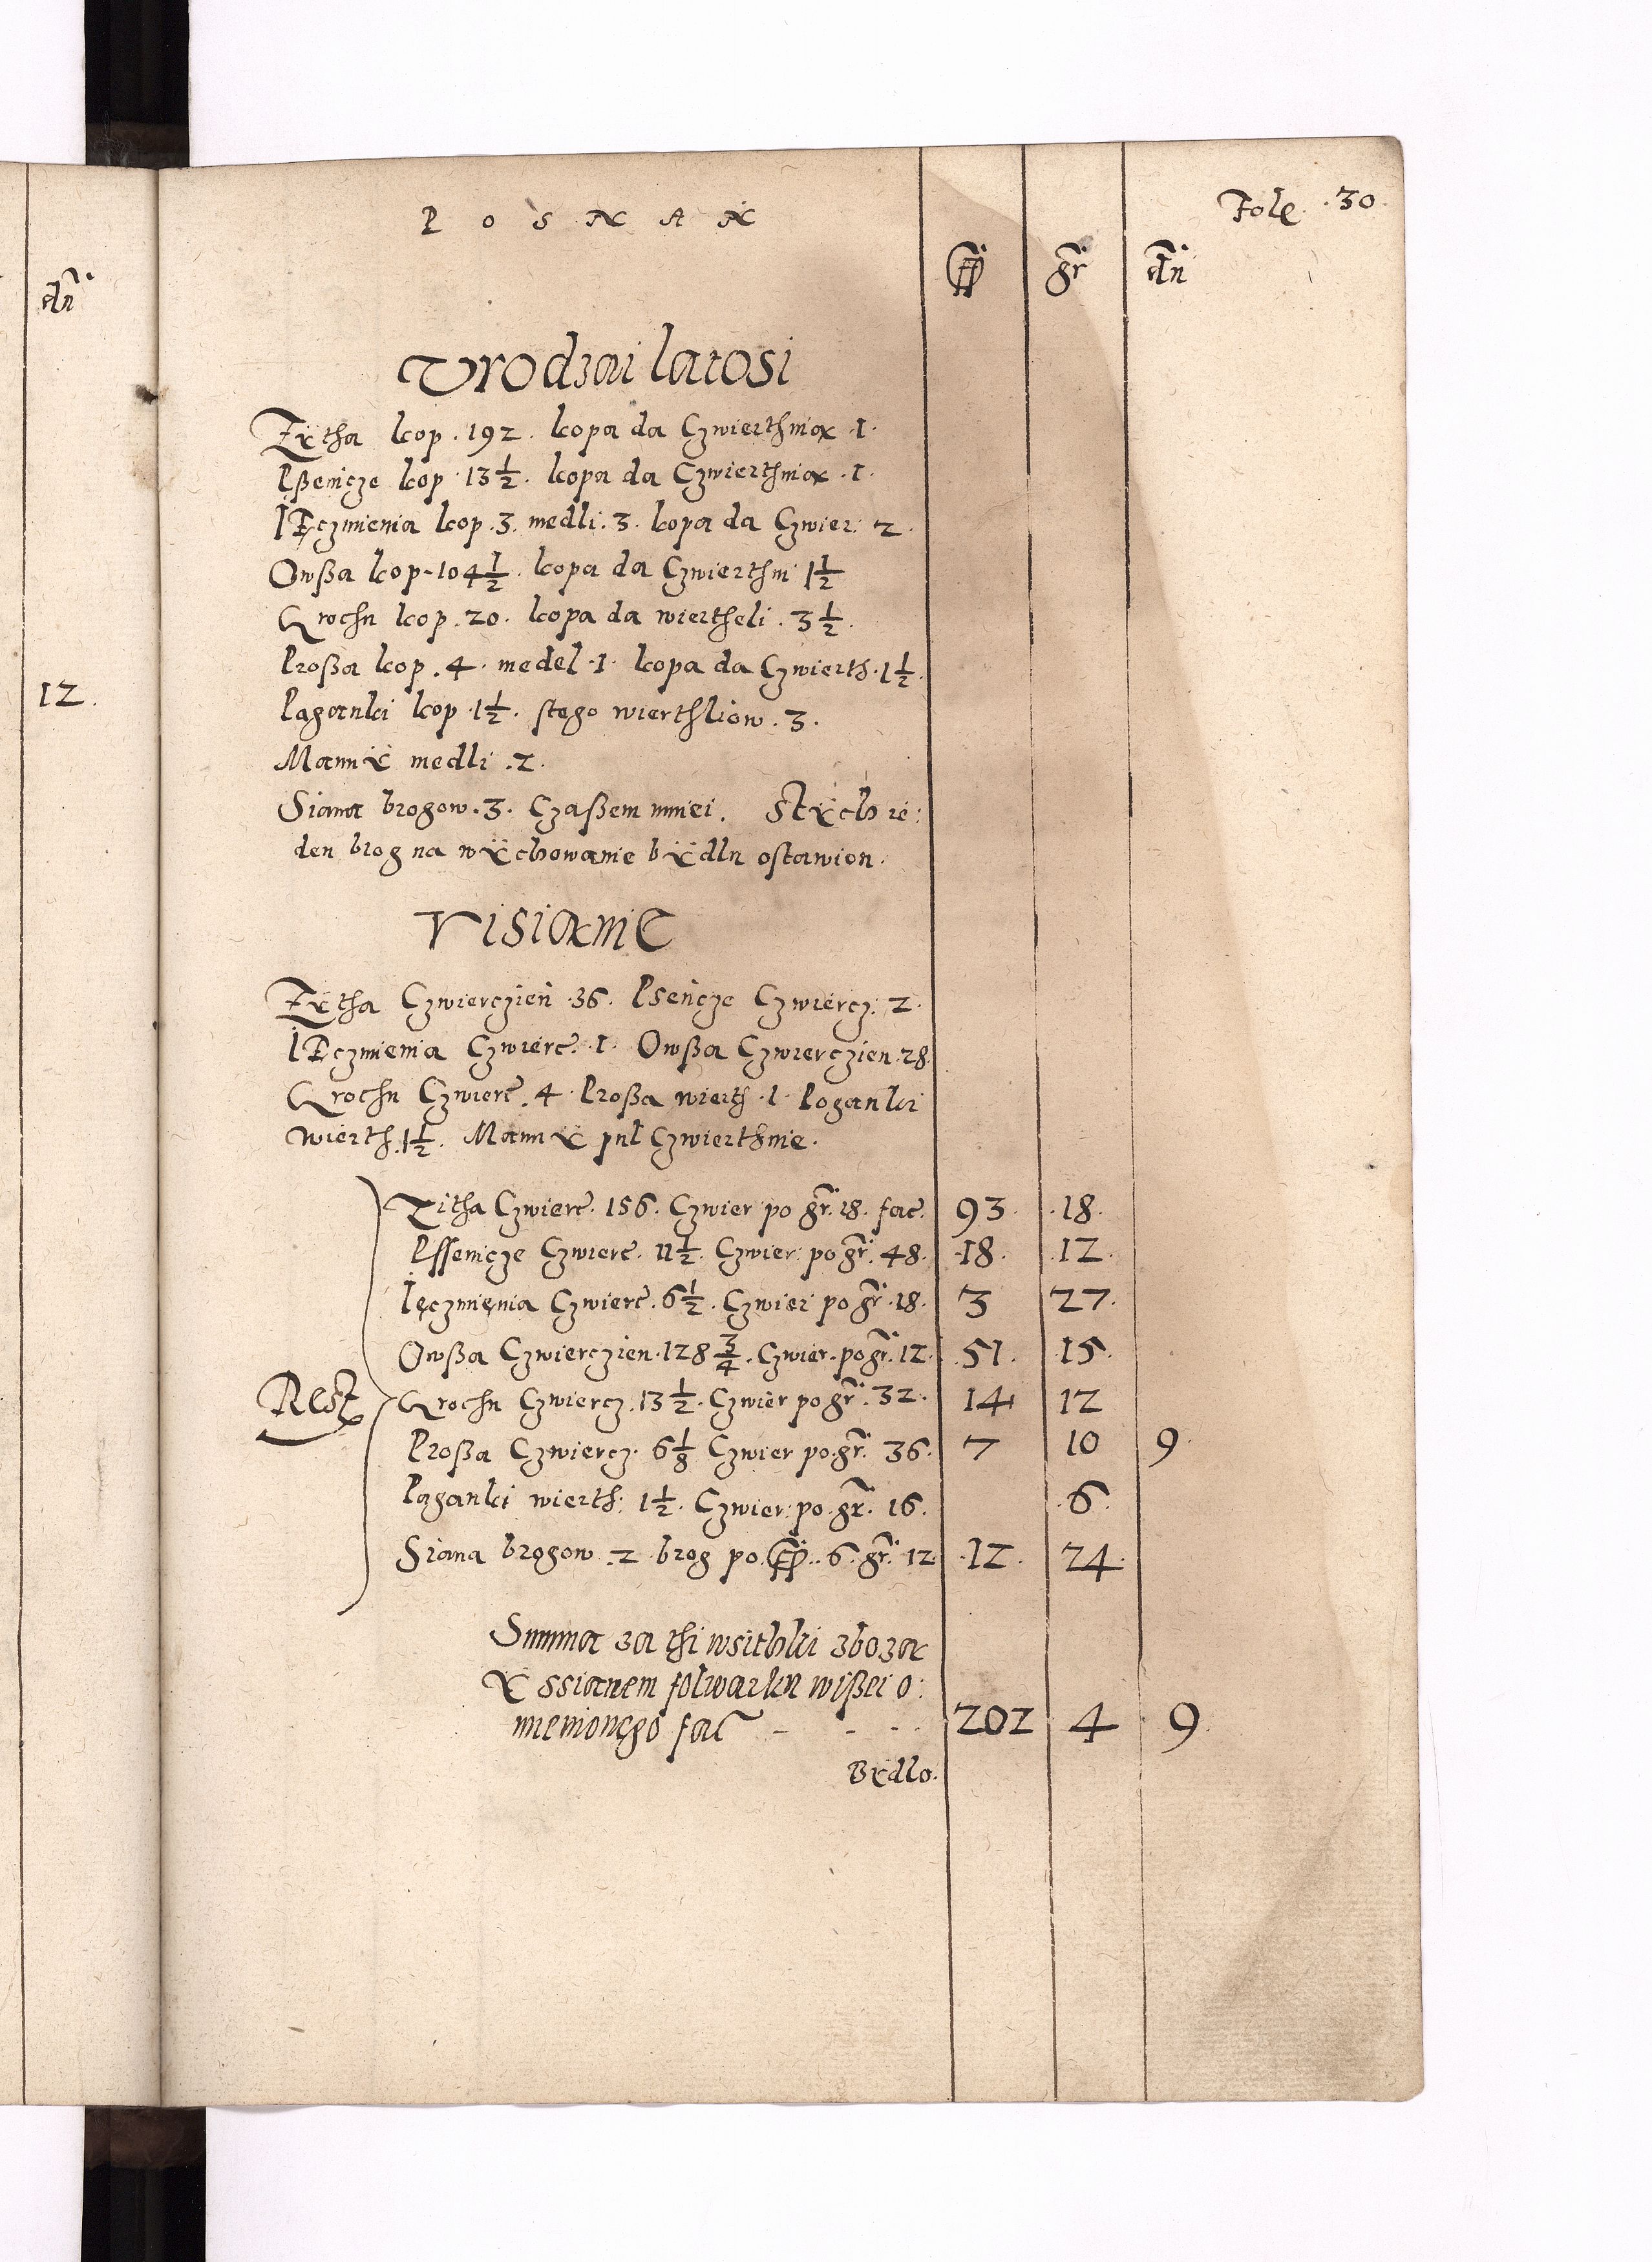 P O S N A N
Fole. 30
dn̄
ff gr̄ dn̄
Vrodzai latosi
Zÿtha kop. 192. kopa da Czwierthniä .1.
Pßenicze kop. 13 1/2. kopa da Czwierthniä .1.
JEczmienia kop. 3. medli. 3. kopa da Czwier: 2.
Owßa kop. 104 1/2. kopa da Czwierthni 1 1/2
Grochu kop. 20. kopa da wiertheli. 3 1/2.
Proßa kop. 4. medel .1. kopa da Czwierth. 1 1/2.
Paganki kop. 1 1/2. stego wierthliow. 3.
12.
Mannÿ medli .2.
Siana brogow. 3. Czaßem mniei. Stÿch ie:
den brog na wÿchowanie bÿdlu ostawion.
Visianie
Zÿtha Czwierczien .36. Psenicze Czwiercz: 2.
JEczmienia Czwierc. 1. Owßa Czwierczien. 28.
Grochu Czwierc. 4. Proßa wierth. 1. Poganki
wierth. 1 1/2. Mannÿ pul Czwierthnie.
Rest
Zitha Czwierc. 156. Czwier po gr̄. 18. fac. 93. 18.
Pssenicze Czwierc. 11 1/2. Czwier: po gr̄. 48. 18. 12.
Jęczmięnia Czwierc. 6 1/2. Czwier po gr̄. 18. 3 27.
Owßa Czwierczien. 128 3/4. Czwier. po gr̄. 12. 51. 15.
Grochu Czwiercz. 13 1/2. Czwier po gr̄. 32. 14 12
Proßa Czwiercz. 6 1/8 Czwier po. gr̄. 36. 7 10 9.
Paganki wierth: 1 1/2. Czwier: po. gr̄. 16. 6.
Siana brogow .2 brog po. ff. 6. gr̄. 12. 12. 24.
Summa za thi wsithki zboza
ÿ ssianem folwarku wißei o:
mienionego fac 202 4 9.
Bÿdlo.